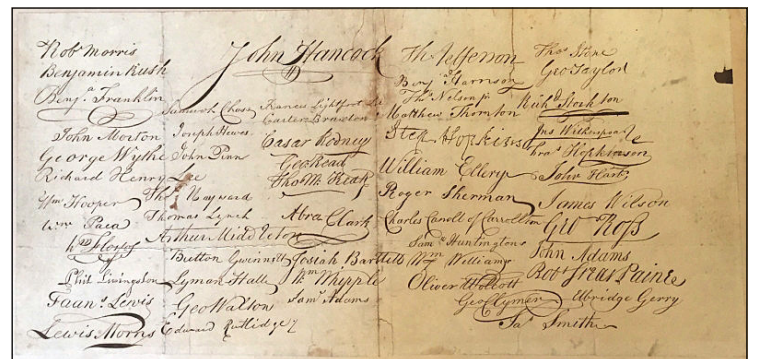 Rob Morris
Benjamin Rush
Benj.a Franklin
John Morton
George Wythe
Richard Henry Lee
Wm Hooper
Wm Paca
Phil. Livingston
Lewis Morris
John Hancock
Samuel Chase
Joseph Hewes
John Penn
Thos Hayward
Thomas Lynch
Arthur Middleton
Button Gwinnett
Lyman Hall
Geo Walton
Edward Rutledge
Francis Lightfoot Lee
Carter Braxton
Caesar Rodney
Geo Read
Tho M: Kean
Abra Clark
Josiah Bartlett
Wm Whipple
Sam Adams
Th Jefferson
Benj.a Harrison
Thos Nelson jr
Matthew Thornton
Step Hopkins
William Ellery
Roger Sherman
Charles Carroll of Carrollton
Sam Huntington
Wm Williams
Oliver Wolcott
Geo Clymer
Thos Stone
Geo Taylor
Rich Stockton
Jno Witherspoon
Fras Hopkinson
John Hart
James Wilson
Geo Ross
John Adams
Rob Treat Paine
Elbridge Gerry
Jas Smith